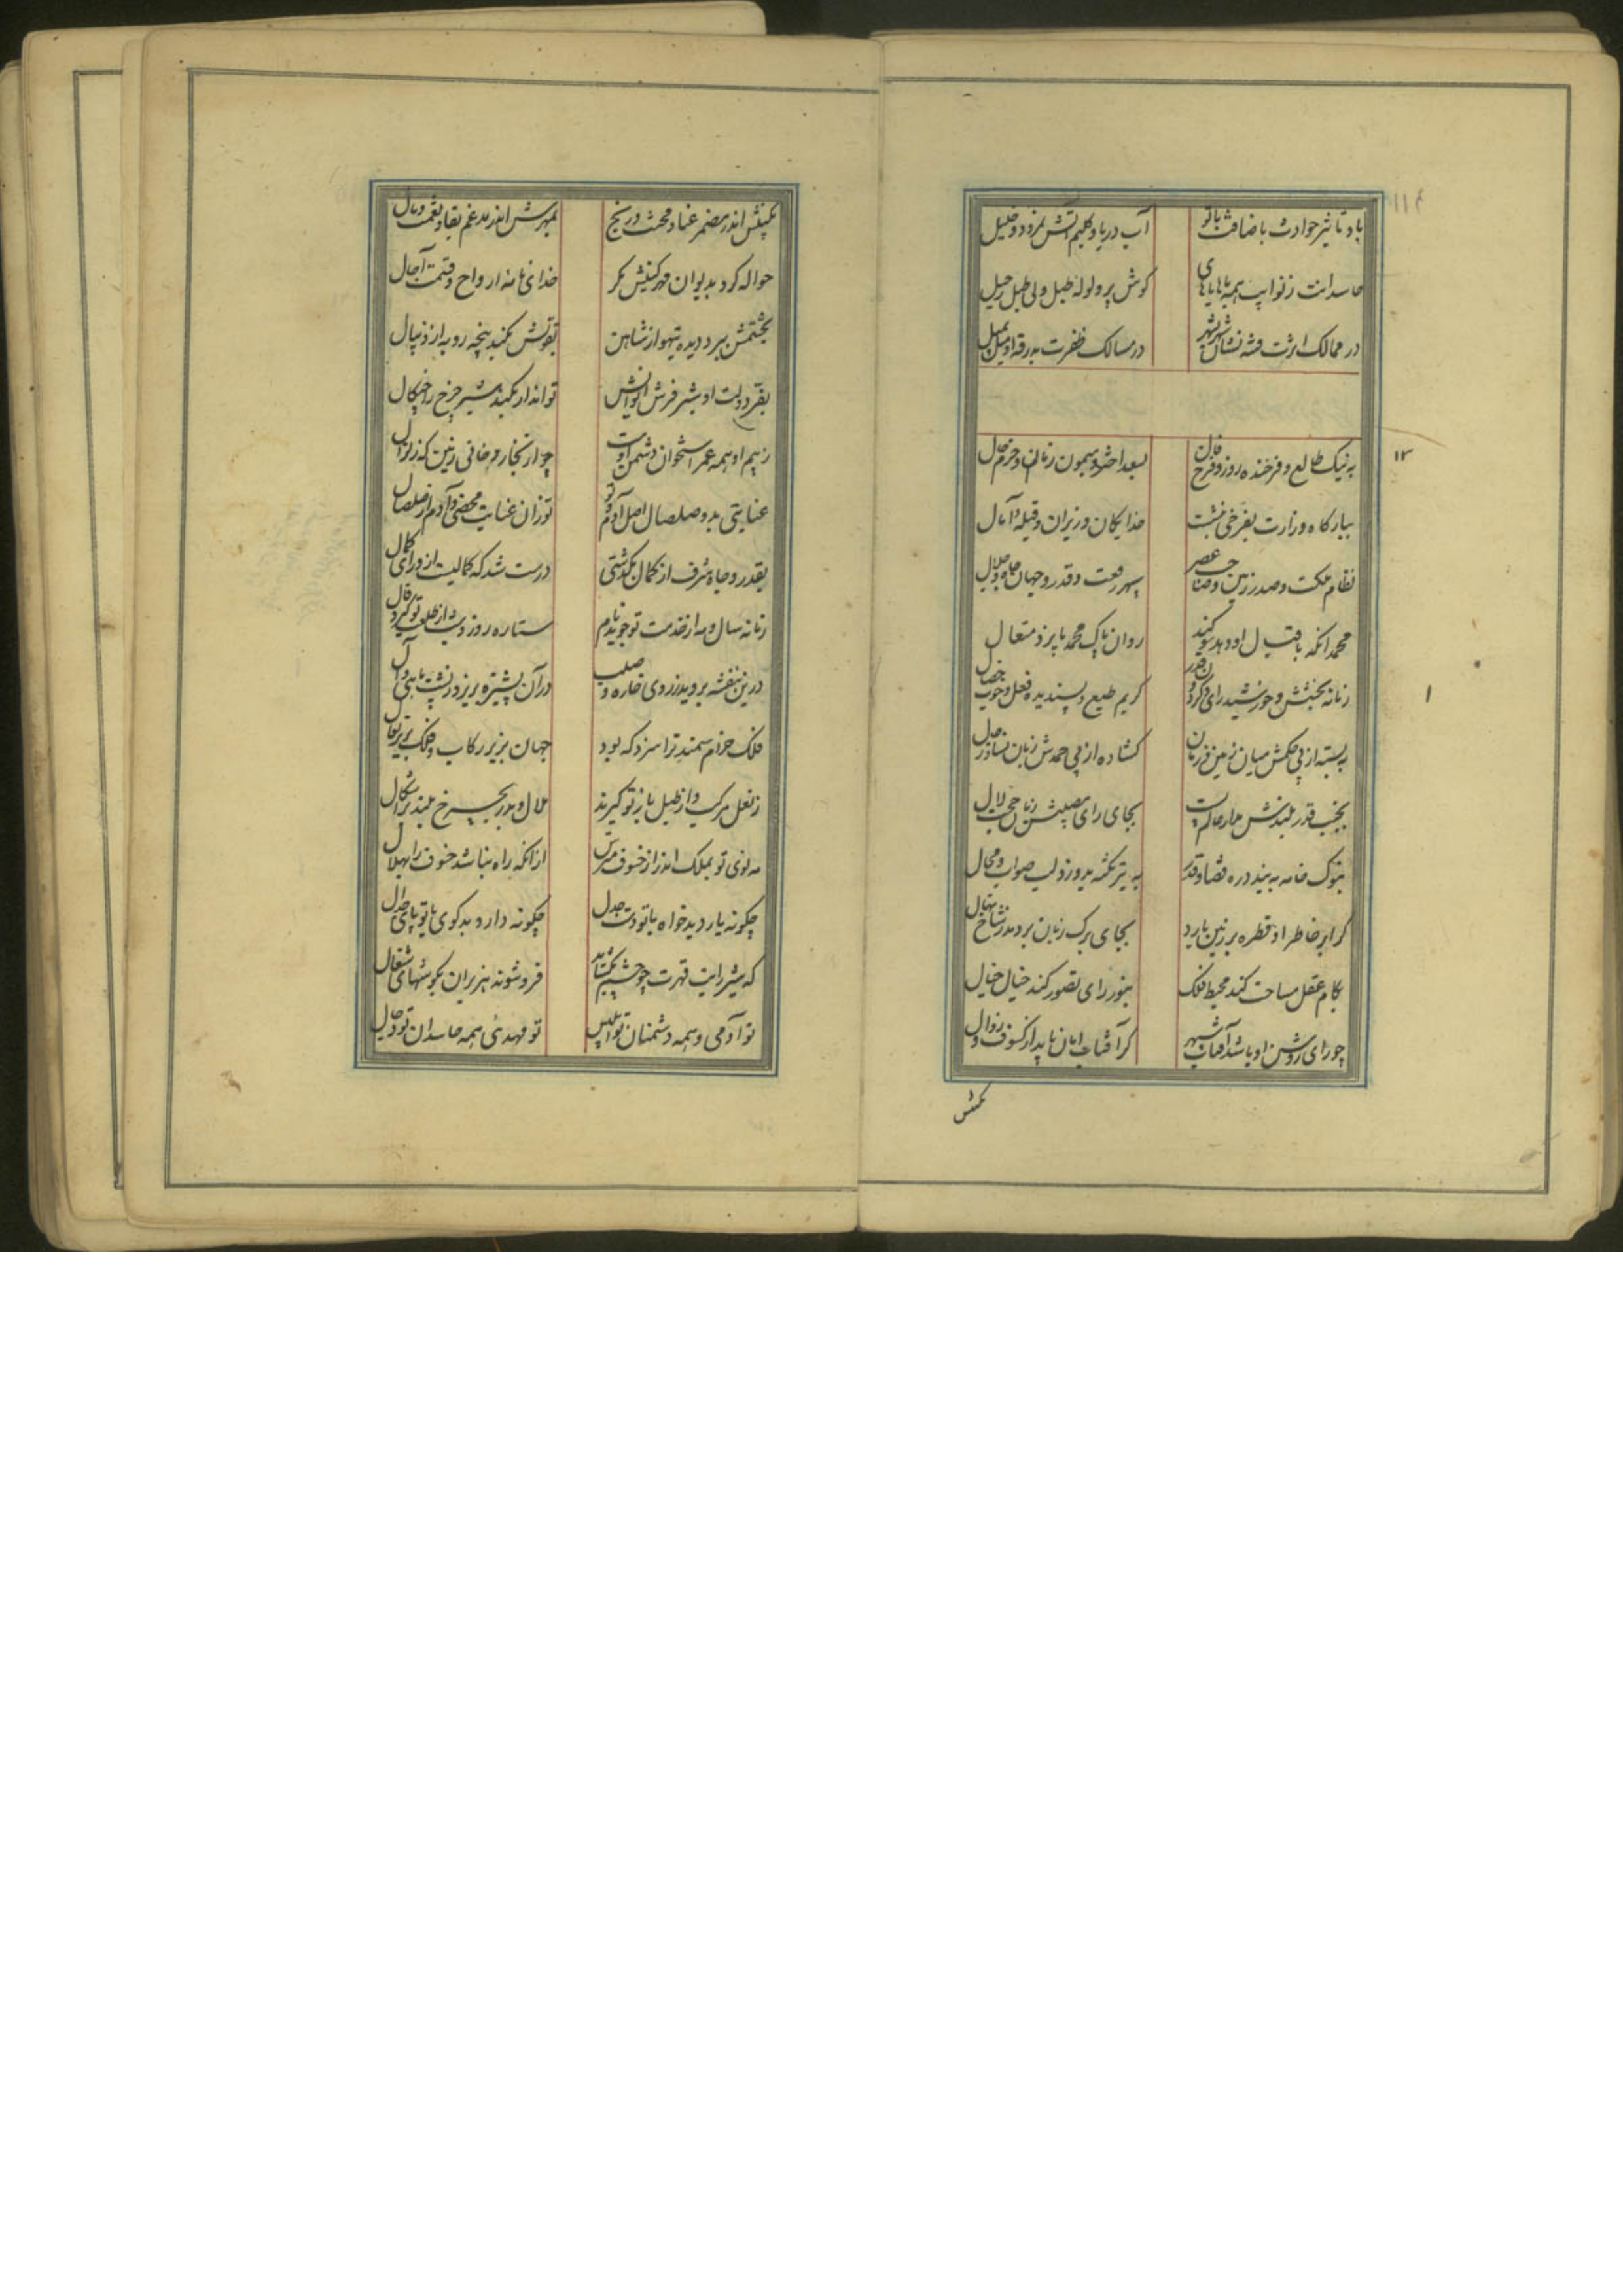 باد تاثیر حوادث باضافت باتو
آب دریا و کلیم آتش نمرود و خلیل
حاسدانت ز نوایب همه با هایاهای
گوش پر ولوله طبل ولی طبل رحیل
در ممالک اثرت فتنه نشان شهر بشهر
در مسالک ظفرت بدرقه او میل بمیل
۱۳
به نیک طالع و فرخنده روز و فرخ فال
بسعد اختر و میمون زمان و خرم حال
ببارکاه وزارت بفرخی بنشست
خدایکان وزیران و قبله آمال
نظام مملکت و صدر زمین و صاحب عصر
سپهر رفعت و قدر و جهان جاه و جلال
محمد آنکه باقبال او دهد سوکند
روان پاک محمد بایزد متعال
زمانه بخشش و خورشید رای و کردون قدر
کریم طبع و پسندیده فعل و خوب خصال
ببسته از پی حکمش میان زمین و زمان
کشاده از پی حمدش زبان نسا و رجال
بجنب قدر بلندش مدار عالم پست
بجای رای مصیبش زبان حجت لال
بنوک خامه ببندد ره قضا و قدر
به تیر نکته بدوزد لب صواب و محال
کر ابر خاطر او قطره بر زمین بارد
بجای برک زبان بردمد ز شاخ نهال
بکام عقل مساحت کند محیط فلک
بنور رای تصور کند خیال خیال
چو رای روشن او باشد آفتاب سپهر
کر آفتاب امان یابد از کسوف و زوال
بکینش اندر مضمر عنا و محنت و رنج
بمهرش اندر مدغم بقا و نعمت و مال
حواله کرد بدیوان مهر و کینش مکر
خدای مائده ارواح و قسمت آجال
بحشمتش ببرد دیده تیهو از شاهین
بقوتش بکند پنجه روبه از ذیبال
بفر دولت او شیر فرش ایوانش
تواند ار بکند شیر چرخ را چنکال
ز بیم او همه عمر استخوان دشمن اوست
چو از بخار دخانی زمین که زلزال
عنایتی بد و صلصال اصل آدم و تو
تو زان عنایت محضی و آدم از صلصال
بقدر و جاه و شرف از کمال بکذشتی
درست شد که کمالیست از ورای کمال
زمانه سال و مه از خدمت تو جوید نام
ستاره روز و شب از طلعت تو کیرد فال
درین بنفشه بروید ز روی خاره صلب
در آن پشیزه بریزد ز پشت ماهی وال
فلک خرام سمند ترا سزد که بود
جهان بزیر رکاب و فلک بزیر نعال
ز نعل مرکب و از طبل باز تو کیرند
هلال و بدر بچرخ بلند بر اشکال
مه نوی تو بملک اندر از خسوف مترس
از انکه راه نباشد خسوف را بهلال
چکونه یارد بدخواه با تو دست جدل
چکونه دارد بدکوی با تو پای جدال
که شیر رایت قهرت چو چشم بکشاید
فرو شوند هزبران بکوشهای شغال
تو آدمی و همه دشمنان تو ابلیس
تو مهدئی همه حاسدان تو دجال
بکینش